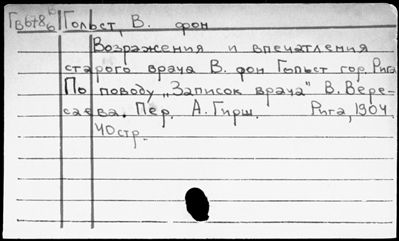 Гв678 Гольст, В. фон
Возражения и впечатления
старого врача В. фон Гольст гор. Рига
По поводу „Записок врача" В. Вере-
саева. Пер. А. Гирш. Рига, 1904.
40стр.